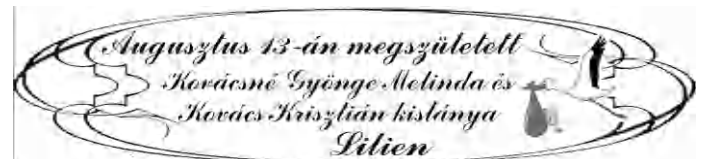 Augusztus 13-án megszületett
Kovácsné Gyönge Melinda és
Kovács Krisztián kislánya
Lilien